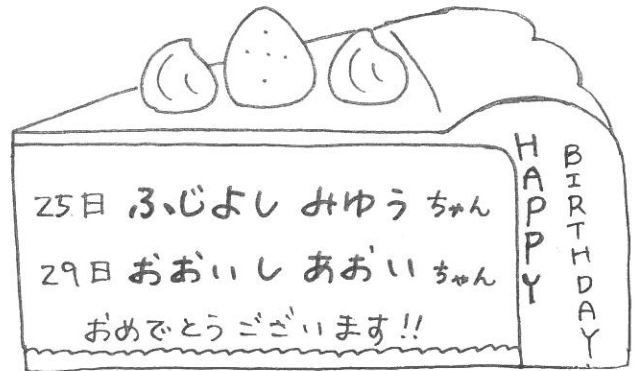 25日 ふじよし みゆう ちゃん
29日 おおいし あおい ちゃん
おめでとうございます!!
HAPPY
BIRTHDAY